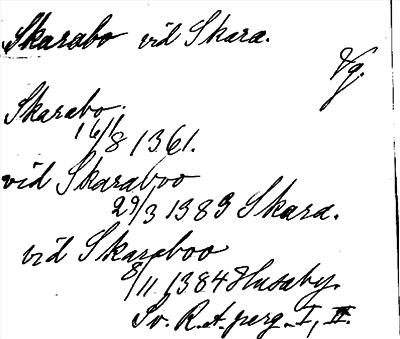 Skarabo vid Skara.
Vg.
Skarabo.
16/8 1361.
vid Skaraboo
29/3 1383 Skara.
vid Skaraboo
8/11 1384 Husaby.
Sv. R.A. perg. I, II.